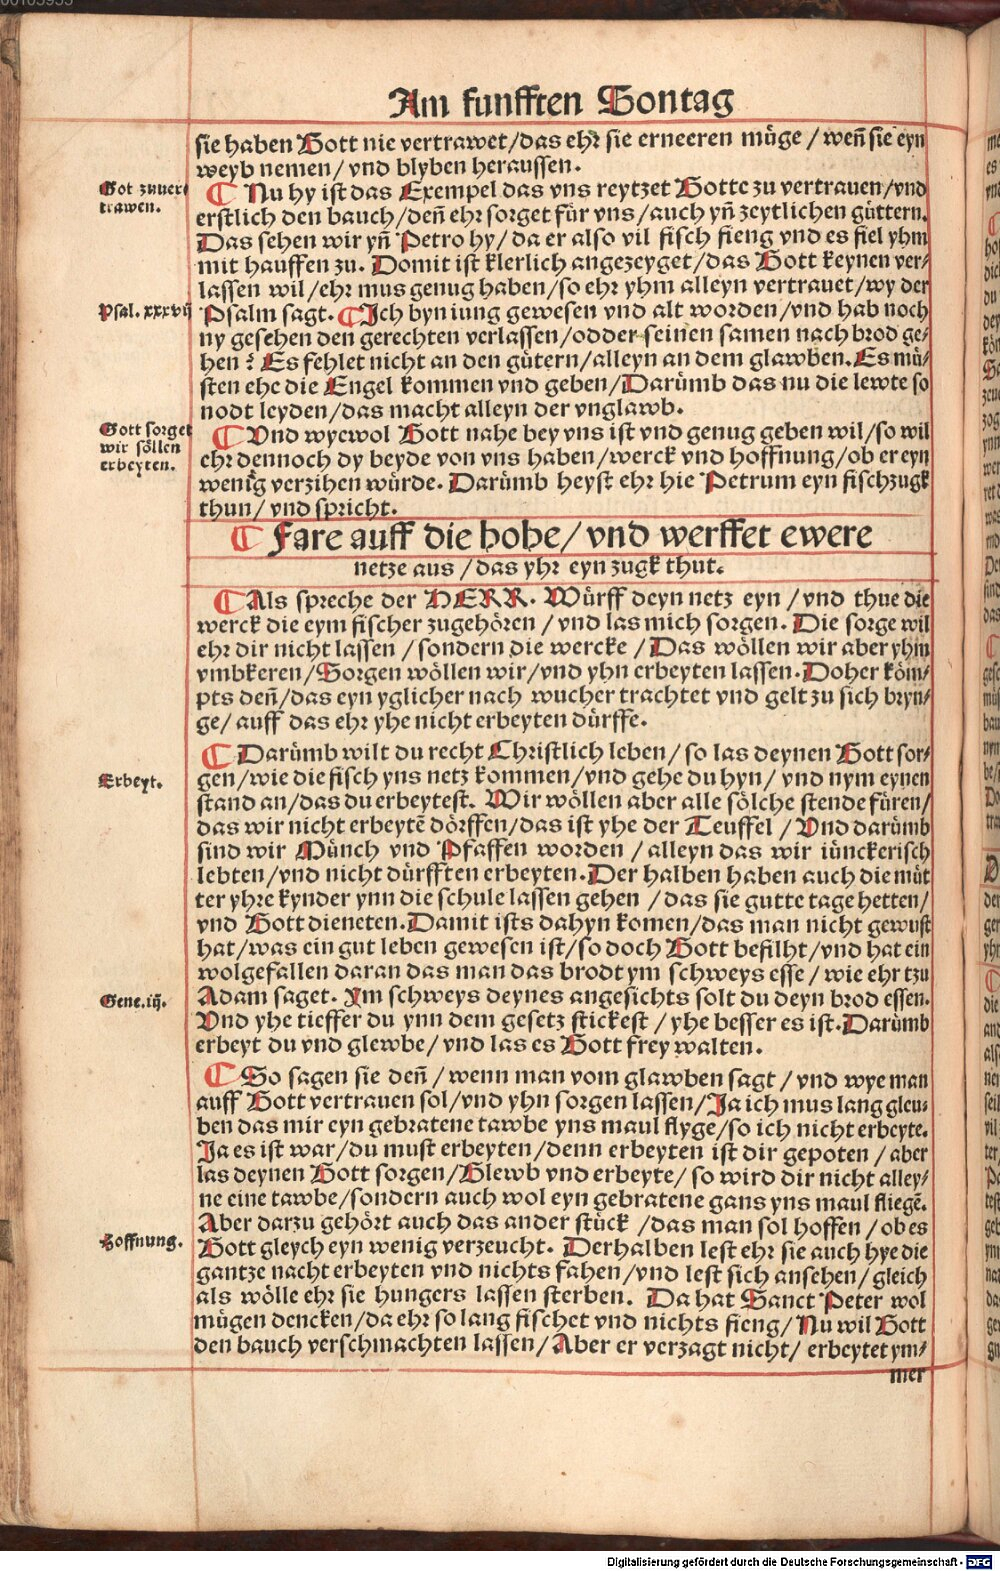 Am funfften Sontag
sie haben Gott nie vertrawet/das ehr sie erneeren müge/wen̄ sie eyn
weyb nemen/vnd blyben heraussen.
Got zuuer⸗
trawen.
¶ Nu hy ist das Exempel das vns reytzet Gotte zu vertrauen/vnd
erstlich den bauch/den̄ ehr sorget für vns/auch yn̄ zeytlichen güttern.
Das sehen wir yn̄ Petro hy/da er also vil fisch fieng vnd es fiel yhm
mit hauffen zu. Domit ist klerlich angezeyget/das Gott keynen ver⸗
lassen wil/ehr mus genug haben/so ehr yhm alleyn vertrauet/wy der
Psal. xxxvij
Psalm sagt. ¶Ich byn iung gewesen vnd alt worden/vnd hab noch
ny gesehen den gerechten verlassen/odder seinen samen nach brod ge⸗
hen? Es fehlet nicht an den gütern/alleyn an dem glawben. Es mü⸗
sten ehe die Engel kommen vnd geben/Darümb das nu die lewte so
nodt leyden/das macht alleyn der vnglawb.
Gott sorget
wir söllen
erbeyten.
¶ Vnd wyewol Gott nahe bey vns ist vnd genug geben wil/so wil
ehr dennoch dy beyde von vns haben/werck vnd hoffnung/ob er eyn
wenig verzihen würde. Darümb heyst ehr hie Petrum eyn fischzugk
thun/vnd spricht.
¶ Fare auff die hohe/vnd werffet ewere
netze aus/das yhr eyn zugk thut.
¶Als spreche der HERR. Würff deyn netz eyn/vnd thue die
werck die eym fischer zugehören/vnd las mich sorgen. Die sorge wil
ehr dir nicht lassen/sondern die wercke/Das wöllen wir aber yhm
vmbkeren/Sorgen wöllen wir/vnd yhn erbeyten lassen. Doher köm⸗
pts den̄/das eyn yglicher nach wucher trachtet vnd gelt zu sich bryn⸗
ge/auff das ehr yhe nicht erbeyten dürffe.
¶ Darümb wilt du recht Christlich leben/so las deynen Gott sor⸗
Erbeyt.
gen/wie die fisch yns netz kommen/vnd gehe du hyn/vnd nym eynen
stand an/das du erbeytest. Wir wöllen aber alle sölche stende füren/
das wir nicht erbeytē dörffen/das ist yhe der Teuffel/Vnd darümb
sind wir Münch vnd Pfaffen worden/alleyn das wir iünckerisch
lebten/vnd nicht dürfften erbeyten. Der halben haben auch die müt
ter yhre kynder ynn die schule lassen gehen/das sie gutte tage hetten/
vnd Gott dieneten. Damit ists dahyn komen/das man nicht gewust
hat/was ein gut leben gewesen ist/so doch Gott befilht/vnd hat ein
wolgefallen daran das man das brodt ym schweys esse/wie ehr tzu
Gene. iij.
Adam saget. Ym schweys deynes angesichts solt du deyn brod essen.
Vnd yhe tieffer du ynn dem gesetz stickest/yhe besser es ist. Darümb
erbeyt du vnd glewbe/vnd las es Gott frey walten.
¶ So sagen sie den̄/wenn man vom glawben sagt/vnd wye man
auff Gott vertrauen sol/vnd yhn sorgen lassen/Ja ich mus lang gleu⸗
ben das mir eyn gebratene tawbe yns maul flyge/so ich nicht erbeyte.
Ja es ist war/du must erbeyten/denn erbeyten ist dir gepoten/aber
las deynen Gott sorgen/Glewb vnd erbeyte/so wird dir nicht alley⸗
ne eine tawbe/sondern auch wol eyn gebratene gans yns maul fliegē.
Aber darzu gehört auch das ander stück/das man sol hoffen/ob es
Hoffnung.
Gott gleych eyn wenig verzeucht. Derhalben lest ehr sie auch hye die
gantze nacht erbeyten vnd nichts fahen/vnd lest sich ansehen/gleich
als wölle ehr sie hungers lassen sterben. Da hat Sanct Peter wol
mügen dencken/da ehr so lang fischet vnd nichts fieng/Nu wil Gott
den bauch verschmachten lassen/Aber er verzagt nicht/erbeytet ym⸗
mer
Digitalisierung gefördert durch die Deutsche Forschungsgemeinschaft - DFG